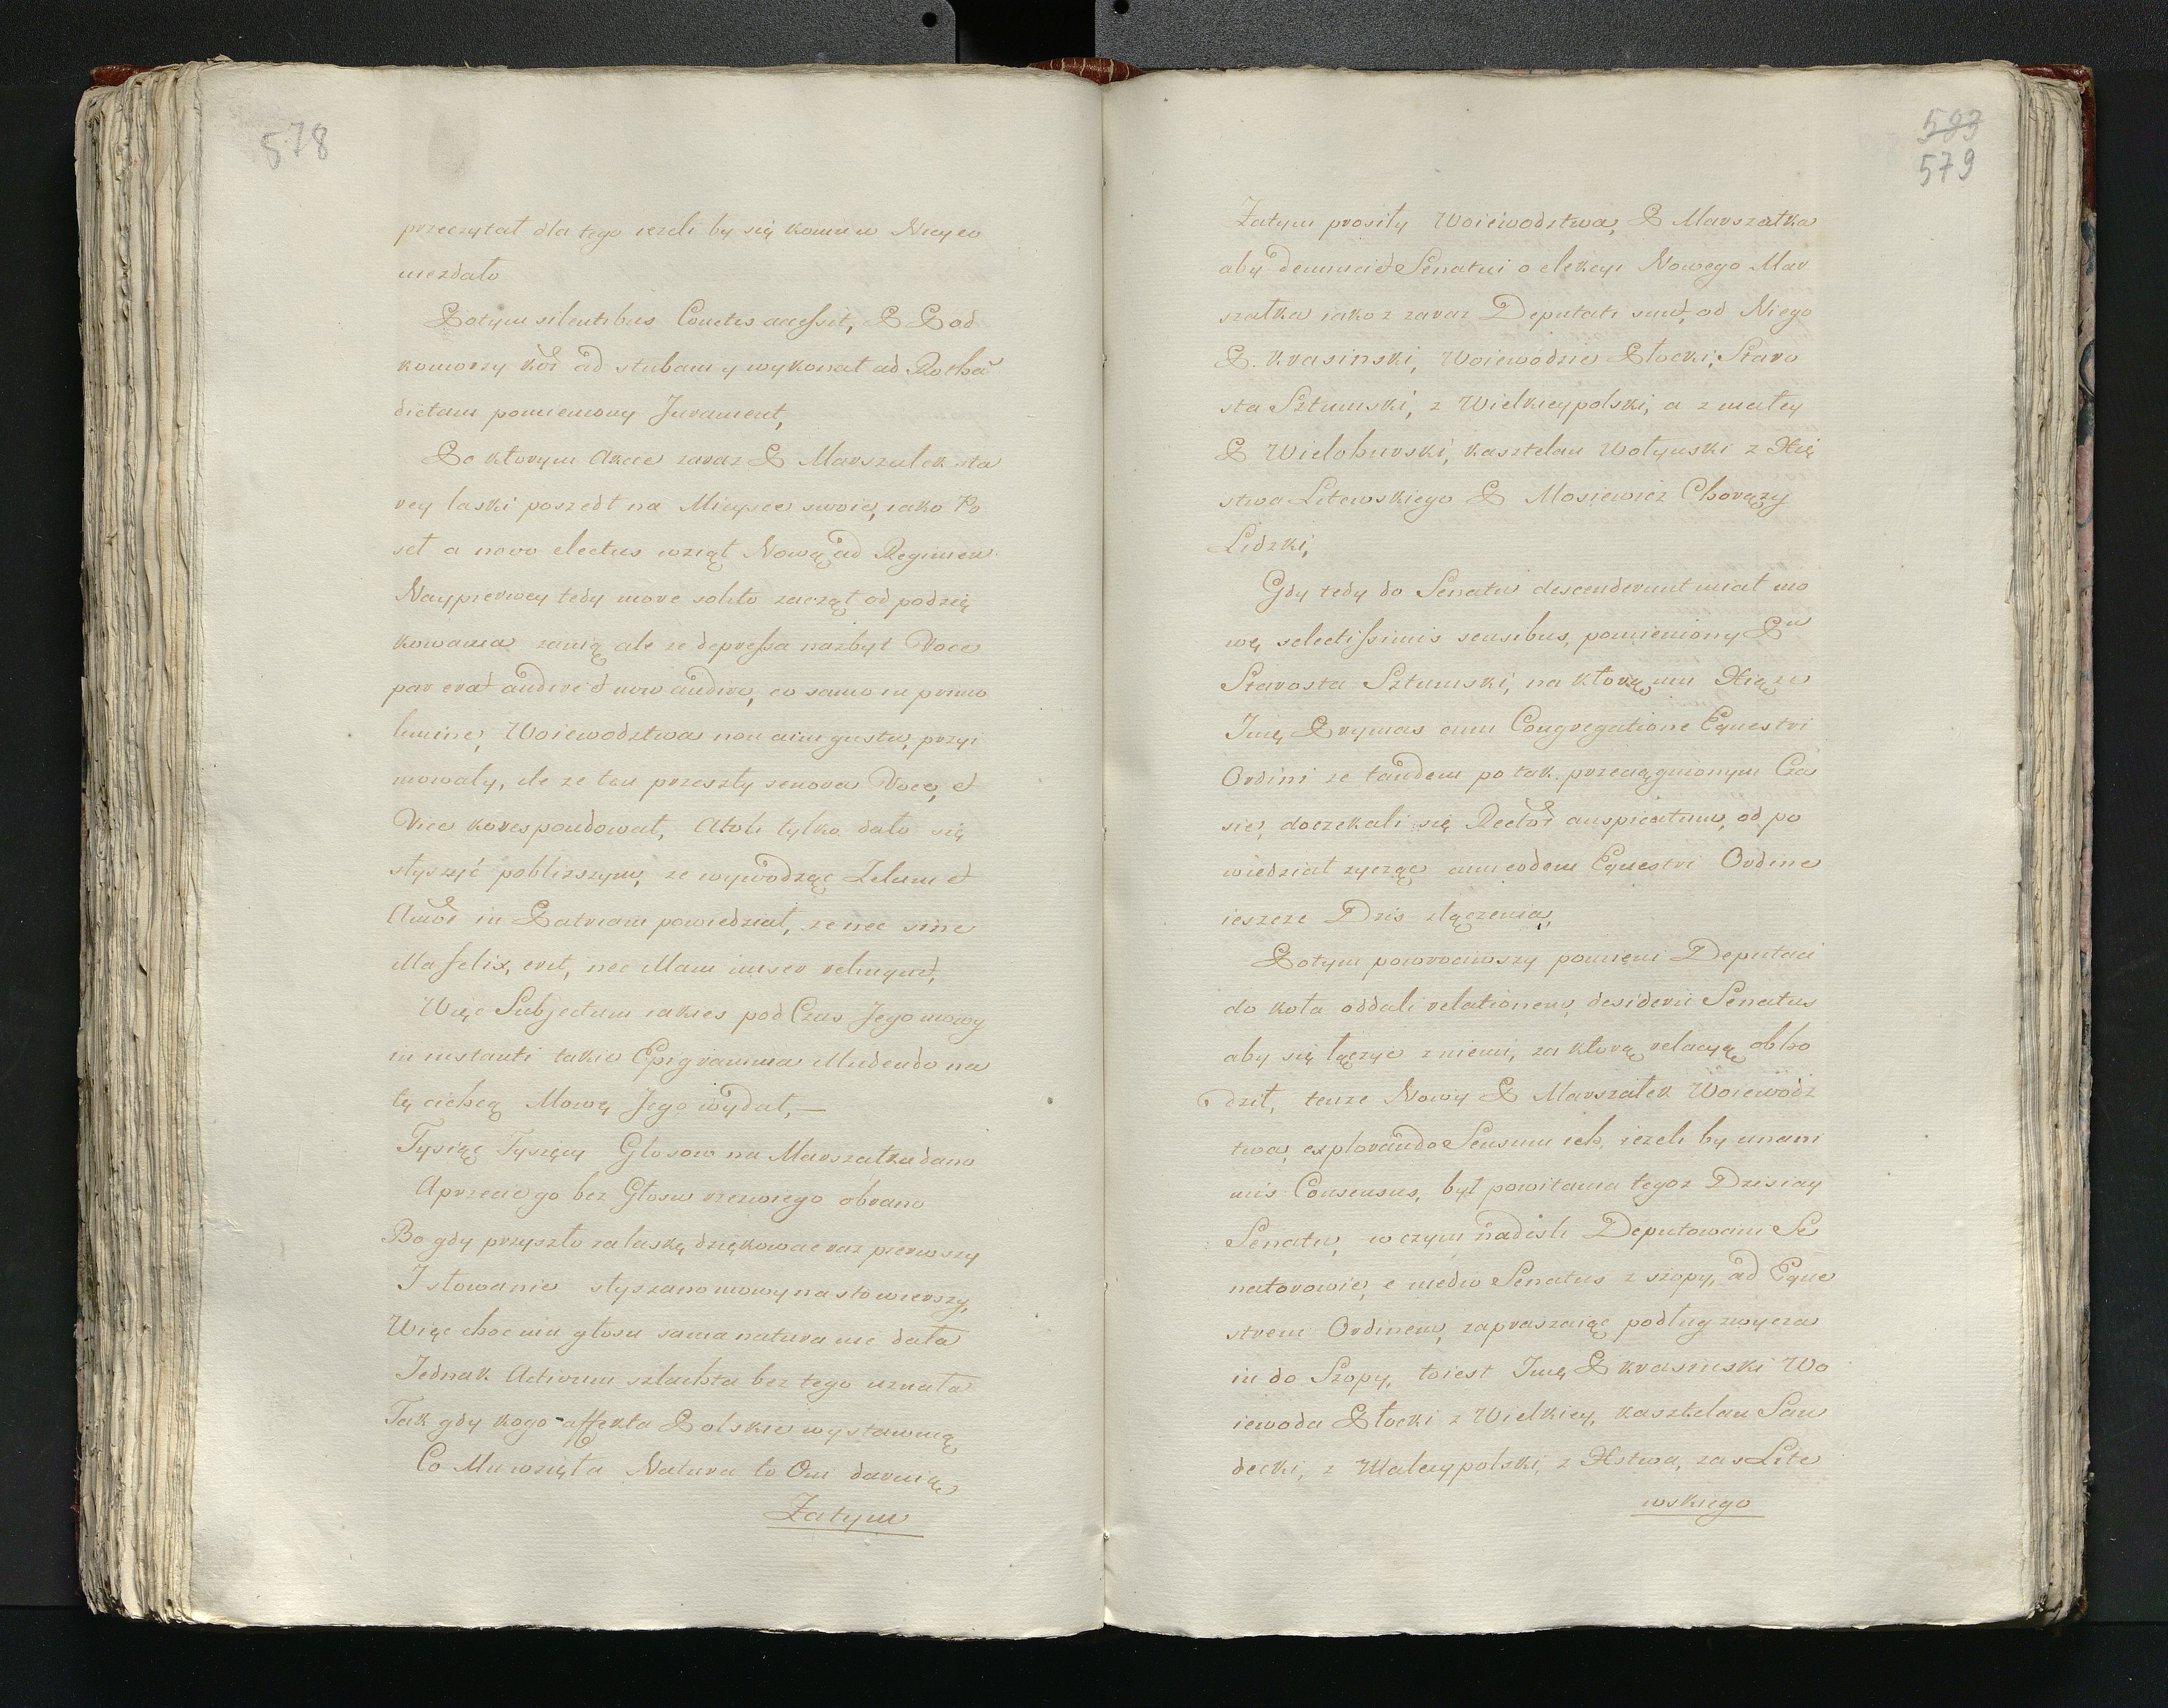 578
przeczytał dla tego ieżeli by się komu w Niey co
niezdało
Potym silentibus Cunctis accessit, P Pod
komorzy kor ad stubam y wykonał ad Rotha
dictam pomieniony Jurament,
Po ktorym Akcie zaraz P Marszałek sta
rey laski poszedł na Mieysce swoie, iako Po
seł a novo electus wziął Nową ad Regimen
Naypierwey tedy more solito zaczął od podzię
kowania za nią ale ze depressa nazbyt Voce
par erat audire et non audire, co samo in primo
limine, Woiewodztwa non cum gustu, przyi
mowały, ile ze ten przeszły senora Voce, et
Vice korespondował, Atoli tylko dało się
słyszyć poblizszym, ze wywodząc Zelum et
Amor in Patriam powiedział, ze nec sine
illa felix, erit, nec illam miser relinquet,
Więc Subjectum iakies pod Czas Jego mowy
in instanti takie Epigramma illudendo na
tę cichcą Mowę Jego wydał, —
Tysiąc Tysięcy Głosow na Marszałka dano
A przecie go bez Głosu rzezwiego obrano
Bo gdy przyszło za laskę dziękować raz pierwszy
I słowa nie słyszano mowy na sto wierszy,
Więc choc mu głosu sama natura nie dała
Jednak Activum szlachta bez tego uznała
Tak gdy kogo affekta Polskie wystawią
Co Mu wzięła Natura to Oni darmią
Zatym
583
579
Zatym prosiły Woiewodztwa, P Marszałka
aby denunciet Senatui o elekcyi Nowego Mar
szałka iakoz zaraz Deputati sunt, od Niego
P. Krasinski, Woiewodzic Płocki, Staro
sta Sztumski, z Wielkieypolski, a z małey
P Wielohurski, kasztelan Wołynski z Xię
stwa Litewskiego P Mosiewicz Chorązy
Lidzki,
Gdy tedy do Senatu descenderunt miał mo
wę selectissimis sensibus, pomieniony Pn
Starosta Sztumski, na ktorą mu Xiąze
Jmę Prymas cum Congregatione Equestri
Ordini ze tandem po tak przeciągnionym Cza
sie, doczekali się Rector auspicatum, od po
wiedział zycząc cum eodem Equestri Ordine
ieszcze Dzis złączenia,
Potym powrociwszy pomieni Deputaci
do koła oddali relationem, desiderii Senatus
aby się łączyc z niemi, za ktorą relacyą obho
dził, tenze Nowy P Marszałek Woiewodz
twa, explorando Sensum ich, ieżeli by unani
mis Consensus, był powitania tegoz Dzisiay
Senatu, w czym nadeśli Deputowani Se
natorowie, e medio Senatus z szopy, ad Eque
strem Ordinem, zapraszaiąc podług zwycza
iu do Szopy, toiest Jmę P Krasinski Wo
iewoda Płocki z Wielkiey, kasztelan San
decki, z Małeypolski, z Xstwa, zas Lite
wskiego